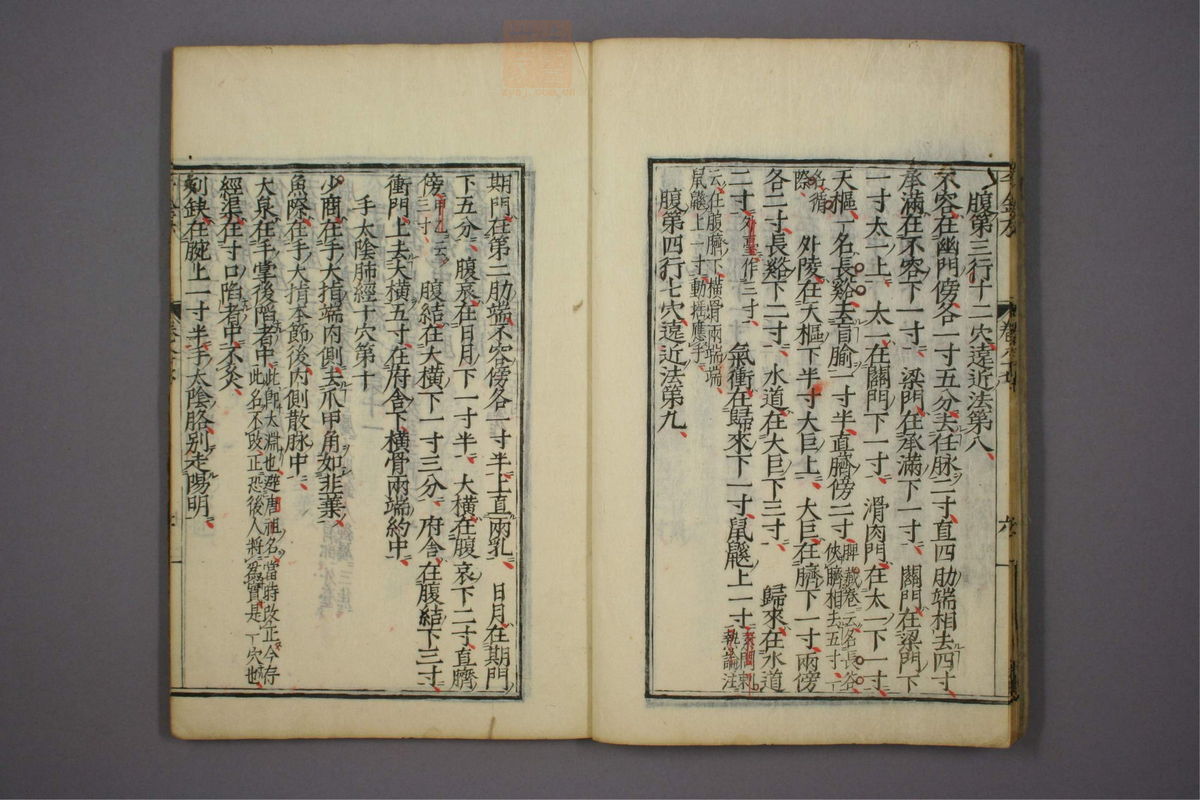 腹第三行十二穴遠近法第八
不容在幽門傍各一寸五分去任脉二寸直四肋端相去四寸
承滿在不容下一寸 梁門在承滿下一寸 關門在梁門下
一寸太一上 太一在關門下一寸 滑肉門在太一下一寸
天樞一名長谿去肓腧一寸半直臍傍二寸脾藏卷云名長谷俠臍相去五寸一
名循際 外陵在天樞下半寸大巨上 大巨在臍下一寸兩傍
各二寸長谿下二寸 水道在大巨下三寸 歸來在水道
二寸外臺作三寸 氣衝在歸來下一寸鼠鼷上一寸素問刺熱論注
云在腹臍下橫骨兩端鼠鼷上一寸動脉應手
腹第四行七穴遠近法第九
期門在第二肋端不容傍各一寸半上直兩乳 日月在期門
下五分 腹哀在日月下一寸半 大橫在腹哀下二寸直臍
傍甲乙云三寸 腹結在大橫下一寸三分 府舍在腹結下三寸
衝門上去大橫五寸在府舍下橫骨兩端約中
手太陰肺經十穴第十
少商在手大指端內側去爪甲角如韭葉
魚際在手大指本節後內側散脉中
大泉在手掌後陷者中此即太淵也避唐祖名當時改正今存此名不改正恐後人將爲別是一穴也
經渠在寸口陷者中不灸
列缺在腕上一寸半手太陰胳别走陽明